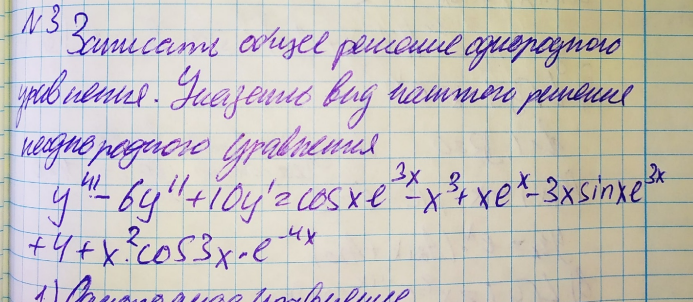 N3 Записать общее решение однородного
уравнения. Указать вид частного решения
неоднородного уравнения
y''' - 6y'' + 10y' = cosxe^3x - x^3 + xe^x - 3xsinxe^3x
+ 4 + x^2·cos3x·e^-4x
1) Однородное уравнение